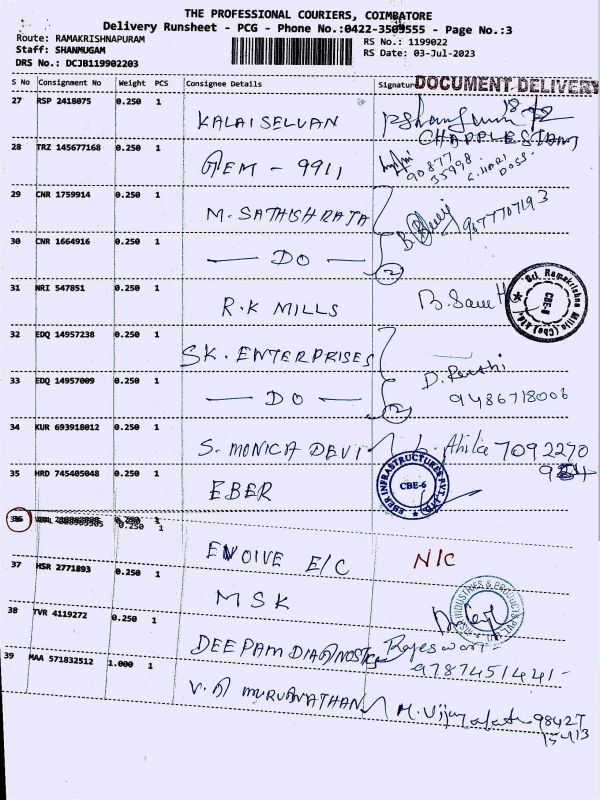 THE PROFESSIONAL COURIERS, COIMBATORE
Delivery Runsheet - PCG - Phone No.:0422-3509555 - Page No.:3
Route: RAMAKRISHNAPURAM
RS No.: 1199022
Staff: SHANMUGAM
RS Date: 03-Jul-2023
DRS No.: DCJB119902203
S No Consignment No Weight PCS Consignee Details Signature
DOCUMENT DELIVERY
27 RSP 2418075 0.250 1
KALAISELVAN
28 TRZ 145677168 0.250 1
GEM - 9911
90877
35998
29 CNR 1759914 0.250 1
M. SATHISHRAJA
9677707193
30 CNR 1664916 0.250 1
DO
2
31 NRI 547851 0.250 1
R.K MILLS
Sri. Ramakrishna Mills (Cbe) Ltd.
CBE-6
32 EDQ 14957238 1
SK. ENTERPRISES
33 EDQ 14957009 0.250 1
DO
2
9486718006
34 KUR 693918012 0.250 1
S. MONICA DEVI
7092270
35 HRD 745405048 0.250 1
EBER
EBER INFRASTRUCTURES PVT. LTD.
CBE-6
36 0.250 1
ENOIVE E/C
N/C
37 HSR 2771893 0.250 1
MSK
38 TVR 4119272 0.250 1
DEEPAM DIAGNOSTIC
Rajeswari
9787451441
39 MAA 571832512 1.000 1
98427
15413